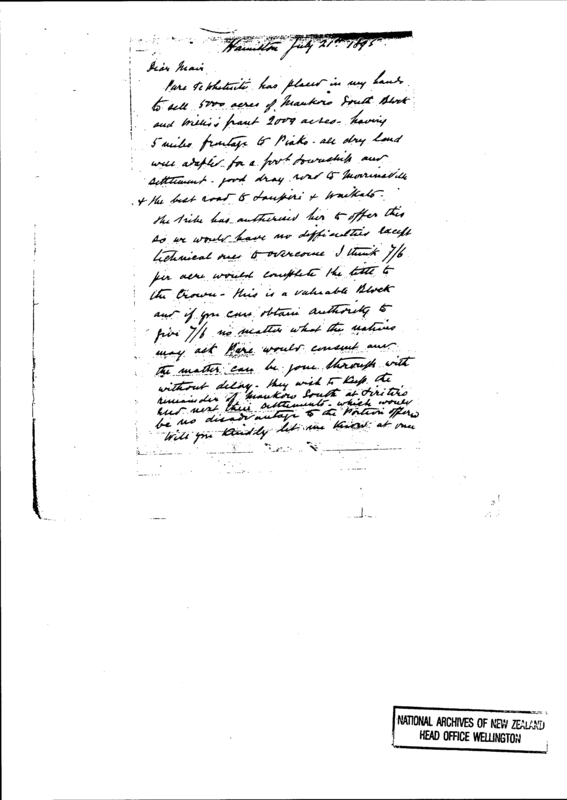 Hamilton July 21st 1895
Dear Mair
Pare Te Whetuiti has placed in my hands
to sell 5000 acres of Maukoro South Block
and Willis's grant 2000 acres - having
5 miles frontage to Piako - all dry land
well adapted for a township and
settlement - good dray road to Morrinsville
& the best road to Taupiri & Waikato.
The tribe has authorised her to offer this
so we would have no difficulties except
technical ones to overcome I think 7/6
per acre would complete the title to
the Crown - this is a valuable Block
and if you can obtain authority to
give 7/6 no matter what the natives
may ask Pare would consent and
the matter can be gone through with
without delay - they wish to keep the
remainder of Maukoro South at
and next their settlements - which would
be no disadvantage to the Portion offered
Will you kindly let me know at once
NATIONAL ARCHIVES OF NEW ZEALAND
HEAD OFFICE WELLINGTON